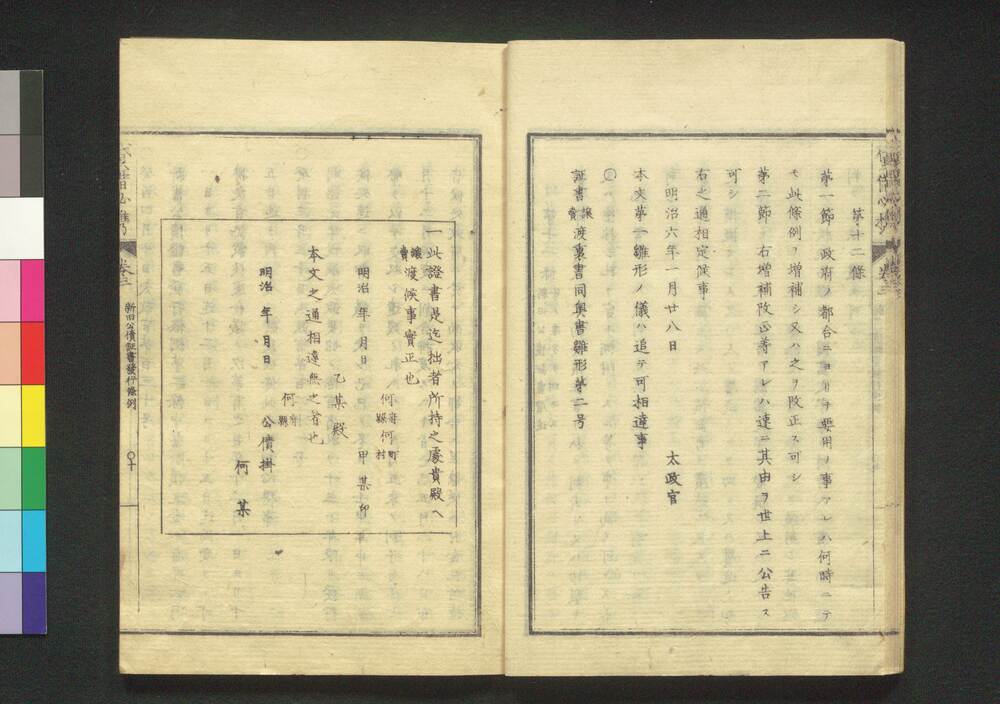 第十二條
第一節 政府ノ都合ニヨリテ要用ノ事アレハ何時ニテ
モ此條例ヲ増補シ又ハ之ヲ改正ス可シ
第二節 右増補改正等アレハ速ニ其由ヲ世上ニ公告ス
可シ
右之通相定候事
明治六年一月廿八日
太政官
本文第一雛形ノ儀ハ追テ可相違事
〇
証書讓賣渡裏書同奥書雛形第二号
一此證書是迄拙者所持之處貴殿ヘ
讓賣渡候事實正也
何府縣何町村
明治 年 月日 甲某印
乙某殿
本文之通相違無之者也
何府縣
明治 年 月日 公債掛
何某
卷三
新旧公債証書發行條例